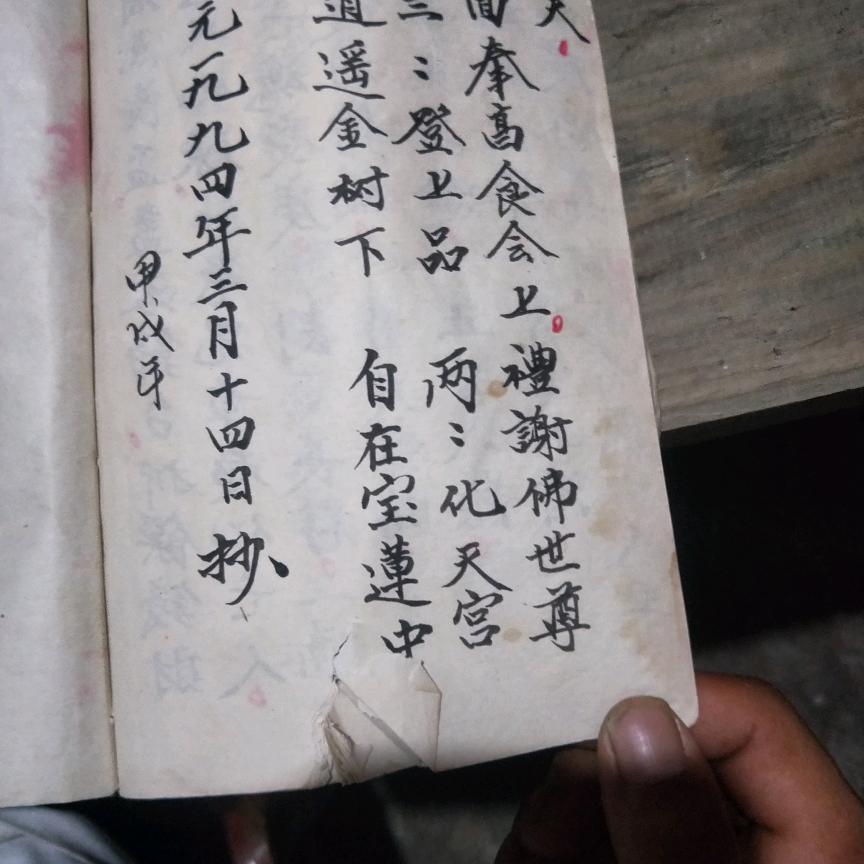 天
面奉高食会上禮謝佛世尊
三：登上品 两：化天宫
逍遥金树下 自在宝蓮中
元一九九四年三月十四日抄
甲戌年